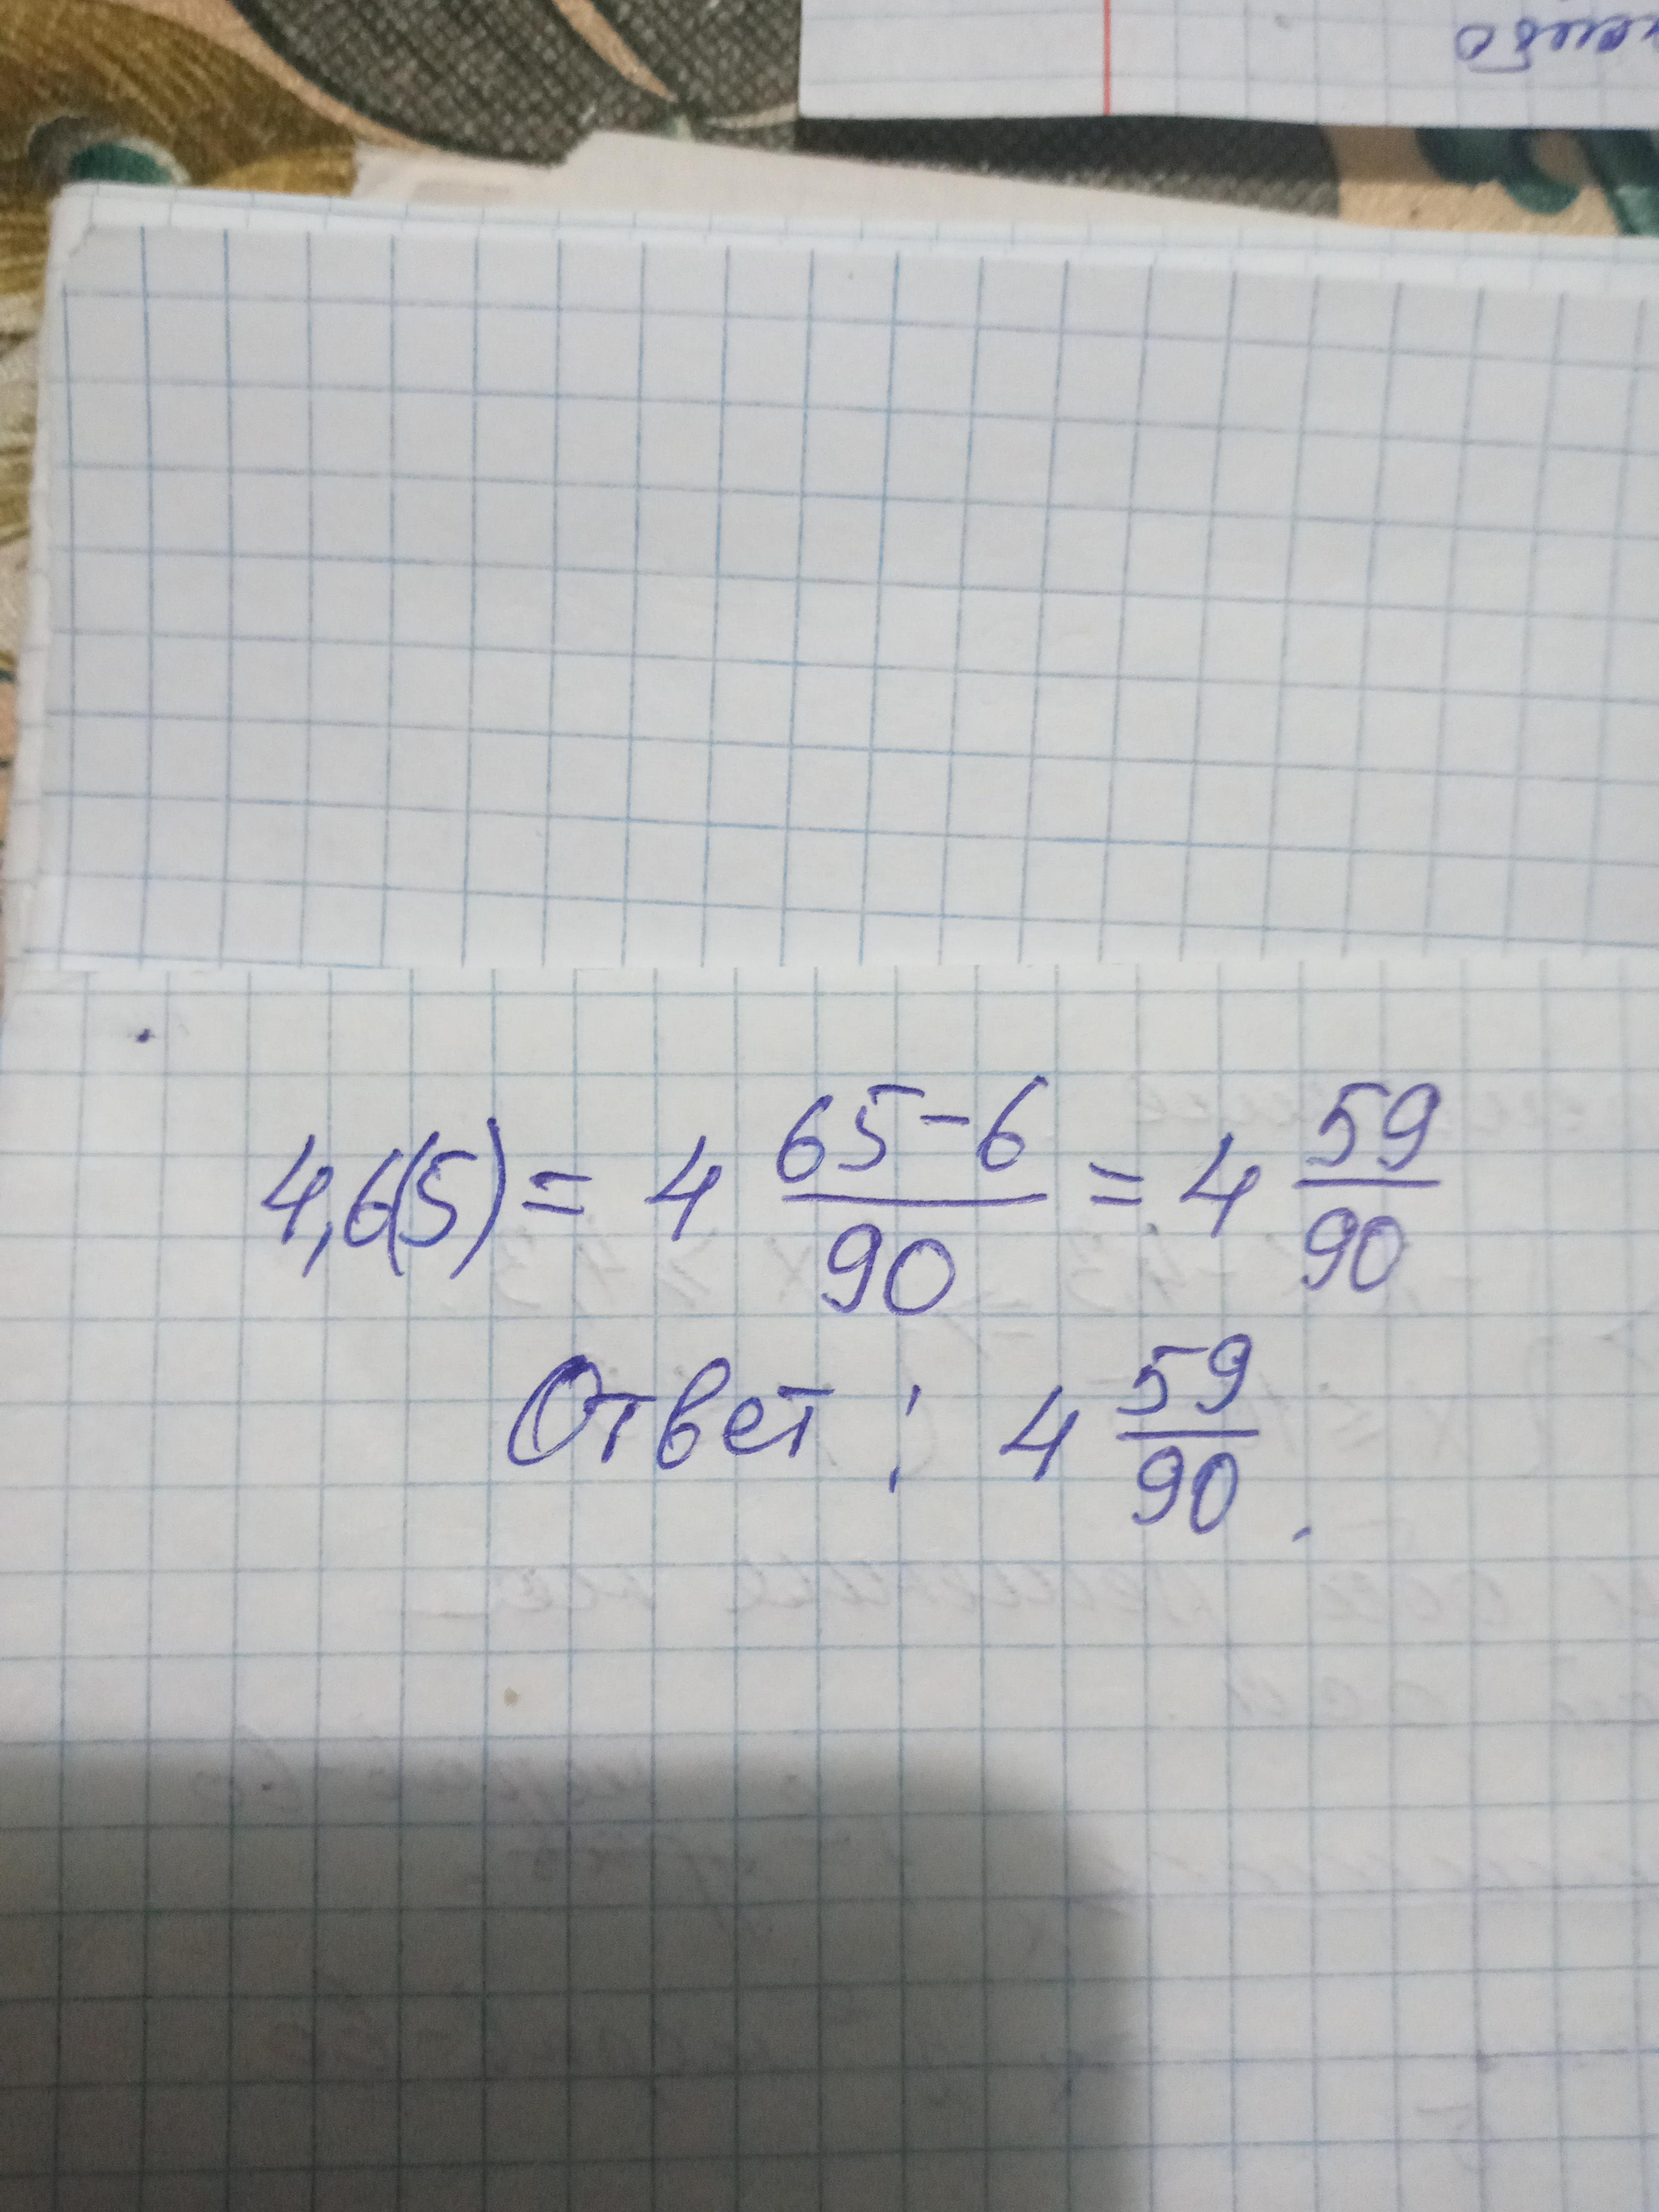 4,6(5) = 4 65-6/90 = 4 59/90
Ответ: 4 59/90.